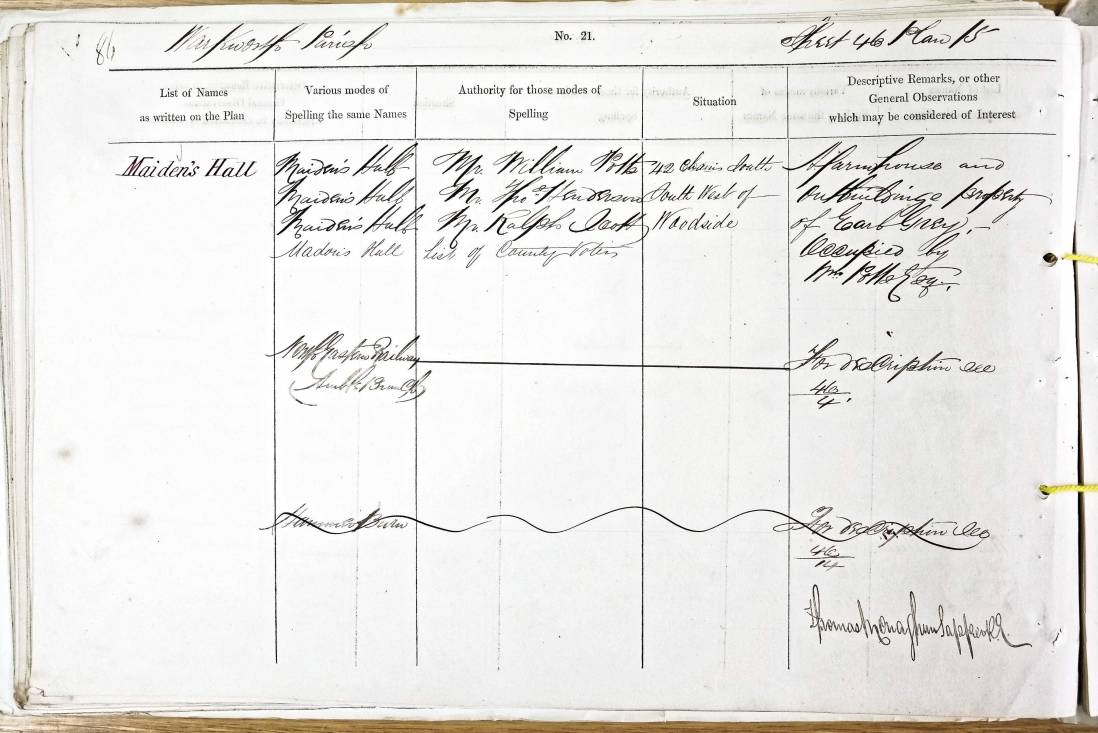 86 Warkworth Parish No. 21. Sheet 46 Plan 15
List of Names
as written on the Plan
Various modes of
Spelling the same Names
Authority for those modes of
Spelling
Situation
Descriptive Remarks, or other
General Observations
which may be considered of Interest
Maiden's Hall
Maiden's Hall
Maiden's Hall
Maiden's Hall
Madon's Hall
Mr. William Potts
Mr. Thos. Henderson
Mr. Ralph Scott
List of County Voters
42 Chains South
South West of
Woodside
A farmhouse and
outbuildings property
of Earl Grey.
Occupied by
Wm Potts Esqr.
North Eastern Railway
(Amble Branch)
For description see
46
4
Burn
For description see
46
14
Thomas Monaghan Sapper R.E.